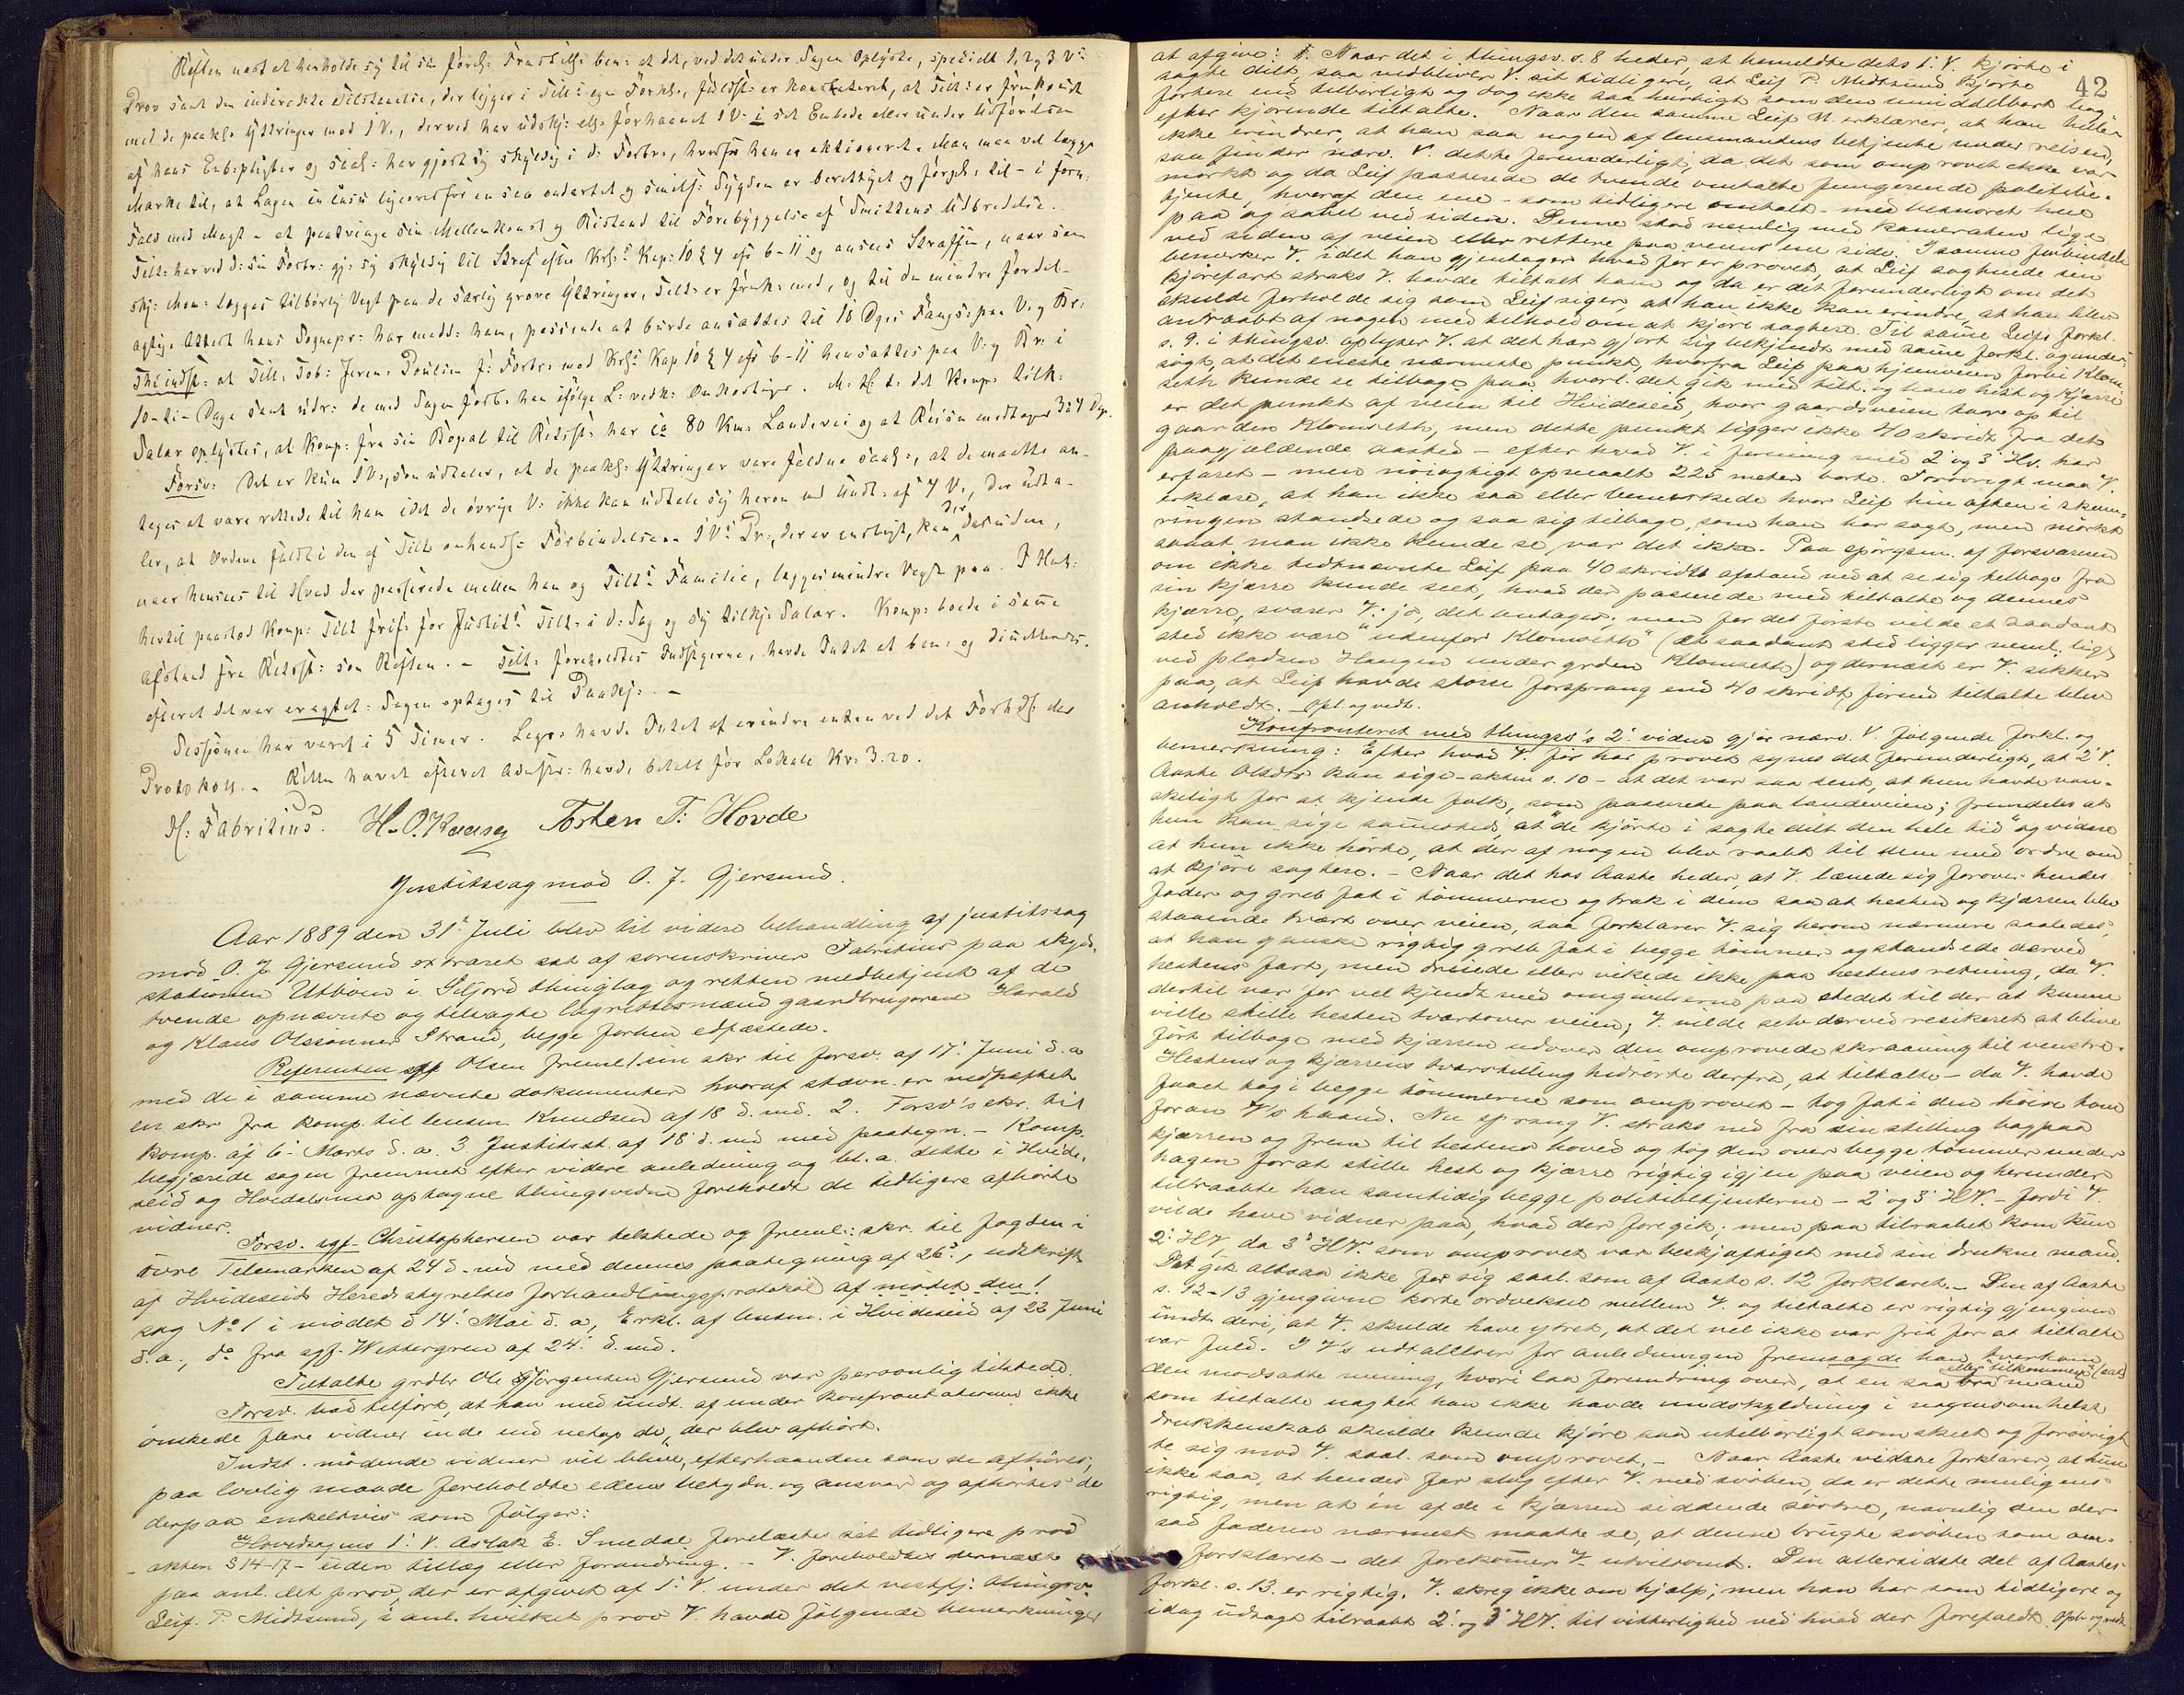 Reften næst at henholde sig til sin förel: Fremstill: bem: at det, ved det under Sagen Oplyste, specielt 1, 2 og 3 V:s
Prov samt den indirekte Tilstaaelse, der ligger i Tilt:s egen Forkl:, fuldst: er konstateret, at Tilt: er fremkomt
med de paakl: Yttringer mod 1 V., derved har udskj: ell: forhaanet 1 V. i sit Embede eller under Udförelsen
af hans Emb:pligter og saal: har gjort sig skyldig i d: Forbr:, hvorfor han er aktioneret. Man maa vel lægge
Mærke til, at Lægen in casu ligeoverfor en saa ondartet og smits: Sygdom er berettiget og forpl: til – i forn:
Fald med Magt – at paatvinge sin Mellemkomst og Bistand til Forebyggelse af Smittens Udbredelse.
Tilt: har ved d: sin Forbr: gj: sig skyldig til Straf efter Krl:s Kap: 10 § 4 cfr 6–11 og ansees Straffen, naar som
skj: Mom: lægges tilbörlig Vegt paa de særlig grove Yttringer, Tilt: er fremk: med, og til den mindre fordel-
agtige Attest hans Sognepr: har medd: ham, passende at burde ansættes til 10 Dages Fængs: paa V. og Br:
Thi indst: at Tilt. Tob: Jeren: Poulsen f: Forbr: mod Krl:s Kap 10 § 4 cfr 6–11 hensættes paa V. og Br. i
10–ti– Dage samt udr: de med Sagen forb: han ifölge L: vedk: Omkostninger. M. H. t. det Komp: tilk:
Salær oplystes, at Komp: fra sin Bopæl til Retsst: har ca 80 Km. Landevei og at Reisen medtager 3 à 4 Dge.
Forsv: Det er kun 1 V., som udtaler, at de paakl: Yttringer vare faldne saal:, at de maatte an-
tages at være rettede til ham idet de övrige V: ikke kan udtale sig herom med Undt: af 4 V., der udta-
ler, at Ordene faldt i den af Tilt. omhandl: Forbindelse. 1 V:s Pr:, der er ensligt, kan der desuden,
naar hensees til Hvad der passerede mellem ham og Tilt:s Familie, lægges mindre Vegt paa. I Henh:
hertil paastod Komp: Tilt frif: for Justits: Tilt: i d: Sag og sig tilkj: Salær. Komp: boede i samme
Afstand fra Retsst: som Reften. – Tilt: foreholdtes Indlægene, havde Intet at bem: og dimitteredes.
efteret det var eragtet: Sagen optages til Paakj: –
Sessionen har varet i 5 Timer. Lagr: havde Intet af erindre enten ved det Forhdl: eller
Protokoll. – Retten hævet efteret Admstr: havde betalt for Lokale Kr: 3.20.
H: Fabritius. H. O. Kaasa Torsten T: Hovde
Justitssag mod O. J. Gjersund.
Aar 1889 den 31te Juli blev til videre behandling af justitssag
mod O. J. Gjersund extraret sat af sorenskriver Fabritius paa skyds-
stationen Utboen i Seljord thinglag og retten medbetjent af de
tvende opnævnte og tilvagte lagrettesmænd gaardbrugerne Harald
og Klaus Olssönner Strand, begge forhen edfæstede.
Referenten sgf Olsen freml. sin skr til forsv. af 17. Juni d. a
med de i samme nævnte dokumenter hvoraf stævn. er vedhæftet
en skr fra komp. til lensm Knudsen af 18 d. md. 2. Forsv's skr. til
komp. af 6. Marts d. a. 3 Justitsst. af 18 d. md med paategn. – Komp.
begjærede sagen fremmet efter videre anledning og bl. a. dette i Hvide-
seid og Hvidalsmo optagne thingsvidne foreholdt de tidligere afhörte
vidner.
Forsv. sgf Christophersen var tilstede og freml: skr. til fogden i
övre Telemarken af 24 d. md med dennes paategning af 26d., udskrift
af Hvideseids Heredsstyrelses forhandlingsprotokol af mödet den!
sag No 1 i mödet d 14. Mai d. a, Erkl. af lensm. i Hvideseid af 22 Juni
d. a., do fra sgf. Wettergren af 24. d. md.
Tiltalte grdbr Ole Jörgensen Gjersund var personlig tilstede.
Forsv. bad tilfört, at han med undt. af under konfrontationen ikke
önskede flere vidner inde end netop de, der blev afhört.
Indst. mödende vidner vil blive, efterhaanden som de afhöres,
paa lovlig maade foreholdte edens betydn. og ansvar og afhörtes de
derpaa enkeltvis som fölger:
Hovedsagens 1. V. Aslak E. Smedal forelæstes sit tidligere prov
– akten S 14–17 – uden tillæg eller forandring. – V. foreholdtes dernæst
paa anl. det prov, der er afgivet af 1. V. under det vestfj. thingsv.
Leif P. Midtsund, i anl. hvilket prov V. havde fölgende bemerkninger
42
at afgive: 1. Naar det i thingsv. s. 8 heder, at bemeldte dets 1. V. kjörte i
sagte dilt, saa vedbliver V. sit tidligere, at Leif P. Midtsund kjörte
fortere end tilbörligt og dog ikke saa hurtigt som den umiddelbart bag
efter kjörende tiltalte. Naar den samme Leif M. erklærer, at han heller
ikke erindrer, at han saa nogen af lensmandens betjente under reisen,
saa finder nærv. V. dette forunderligt, da det som omprovet ikke var
mörkt og da Leif passerede de tvende omtalte fungerende politibe-
tjente, hvoraf den ene – som tidligere omtalt – med besnoret hue
paa og sabel ved siden. Denne stod nemlig med kameraten lige
ved siden af veien eller rettere paa veiens ene side. I samme forbindelse
bemerker V. idet han gjentager hvad för er provet, at Leif sagtnede sin
kjörefart straks V. havde tiltalt ham og da er det forunderligt om det
skulde forholde sig som Leif siger, at han ikke kan erindre, at han blev
antraabt af nogen med tilhold om at kjöre sagtere. Til samme Leifs forkl.
s. 9. i thingsv. oplyser V. at det har gjort sig bekjendt med samme forkl. og under-
sögt, at det eneste nærmeste punkt, hvorfra Leif paa hjemveien forbi Klom-
seth kunde se tilbage paa, hvorl. det gik med tilt. og hans hest og kjærre
er det punkt af veien til Hvideseid, hvor gaardsveien tager op til
gaarden Klomseth, men dette punkt ligger ikke 40 skridt fra det
paagjældende aasted – efter hvad V. i forening med 2 og 3 Hv. har
erfaret – men nöiagtigt opmaalt 225 meter borte. Forövrigt maa V.
erklære, at han ikke saa eller bemerkede hvor Leif hin aften i skum-
ringen standsede og saa sig tilbage, som han har sagt, men mörkt
saaat man ikke kunde se, var det ikke. Paa spörgsm. af forsvareren
om ikke tidtnævnte Leif paa 40 skridts afstand ved at se sig tilbage fra
sin kjærre kunde seet, hvad der passerede med tiltalte og dennes
kjærre, svarer V.: jo, det antages; men for det förste vilde et saadant
sted ikke være "udenfor Klomseth" (et saadant sted ligger neml. lige
ved pladsen Haugen under grden Klomseth) og dernæst er V. sikker
paa, at Leif havde större forsprang end 40 skridt förend tiltalte blev
anholdt. – Opl. og vedt.
Konfronteret med thingsv's 2. vidne gjör nærv. V. fölgende forkl. og
bemerkning: Efter hvad V. för har provet synes det forunderligt, at 2. V.
Aaste Olsdtr kan sige – akten s. 10 – at det var saa sent, at hun havde van-
skeligt for at kjende folk, som passerede paa landeveien; fremdeles at
hun kan sige sammesteds, at "de kjörte i sagte dilt den hele tid" og videre
at hun ikke hörte, at der af nogen blev raabt til dem med ordre om
at kjöre sagtere. – Naar det hos Aaste heder, at V. lænede sig forover hendes
fader og greb fat i tömmerne og trak i dem saa at hesten og kjærren blev
staaende tvært over veien, saa forklarer V. sig herom nærmere saaledes,
at han ganske rigtig greb fat i begge tömmer og standsede derved
hestens fart, men dreiede eller vikede ikke paa hestens retning, da V.
dertil var for vel kjendt med omgivelserne paa stedet til der at kunne
ville stille hesten tvertover veien; V. vilde selv derved resikeret at blive
fört tilbage med kjærren udover den omprovede skraaning til venstre.
Hestens og kjærrens tverstilling hidrörte derfra, at tiltalte – da V. havde
faaet tag i begge tömmerne som omprovet – tog fat i den höire tom
foran V's haand. Nu sprang V. straks ned fra sin stilling bagpaa
kjærren og frem til hestens hoved og tog den over begge tömmer under
hagen forat stille hest og kjærre rigtig igjen paa veien og herunder
tilraabte han samtidig begge politibetjenterne – 2. og 3. HV. – fordi V.
vilde have vidner paa, hvad der foregik; men paa tilraabet kom kun
2. HV. da 3. HV. som omprovet var beskjæftiget med sin drukne mand.
Det gik altsaa ikke for sig saal. som af Aaste s. 12 forklaret. – Den af Aaste
s. 12–13 gjengivne korte ordveksel mellem V. og tiltalte er rigtig gjengiven
undt. deri, at V. skulde have ytret, at det vel ikke var frit for at tiltalte
var fuld. I V's udtallelser for anledningen fremsagde han tverimod
den modsatte mening, hvori laa forundring over, at en saa bra eller "tilkommen" (sat) mand
som tiltalte uagtet han ikke havde undskyldning i nogensomhelst
drukkenskab skulde kunde kjöre saa utilbörligt som skeet og forövrigt
te sig mod V. saal. som omprovet. – Naar Aaste videre forklarer, at hun
ikke saa, at hendes far slog efter V. med svöben, da er dette muligens
rigtig, men at én af de i kjærren siddende söstre, navnlig den der
sad faderen nærmest maatte se, at denne brugte svöben som om-
forklaret – det forekommer V. utvilsomt. Den allersidste del af Aastes
forkl. s. 13. er rigtig. V. skreg ikke om hjælp; men han har som tidligere og
idag udsagt tilraabt 2. og 3. HV. til vitterlighed ved hvad der forefaldt. Opl. og vedt.